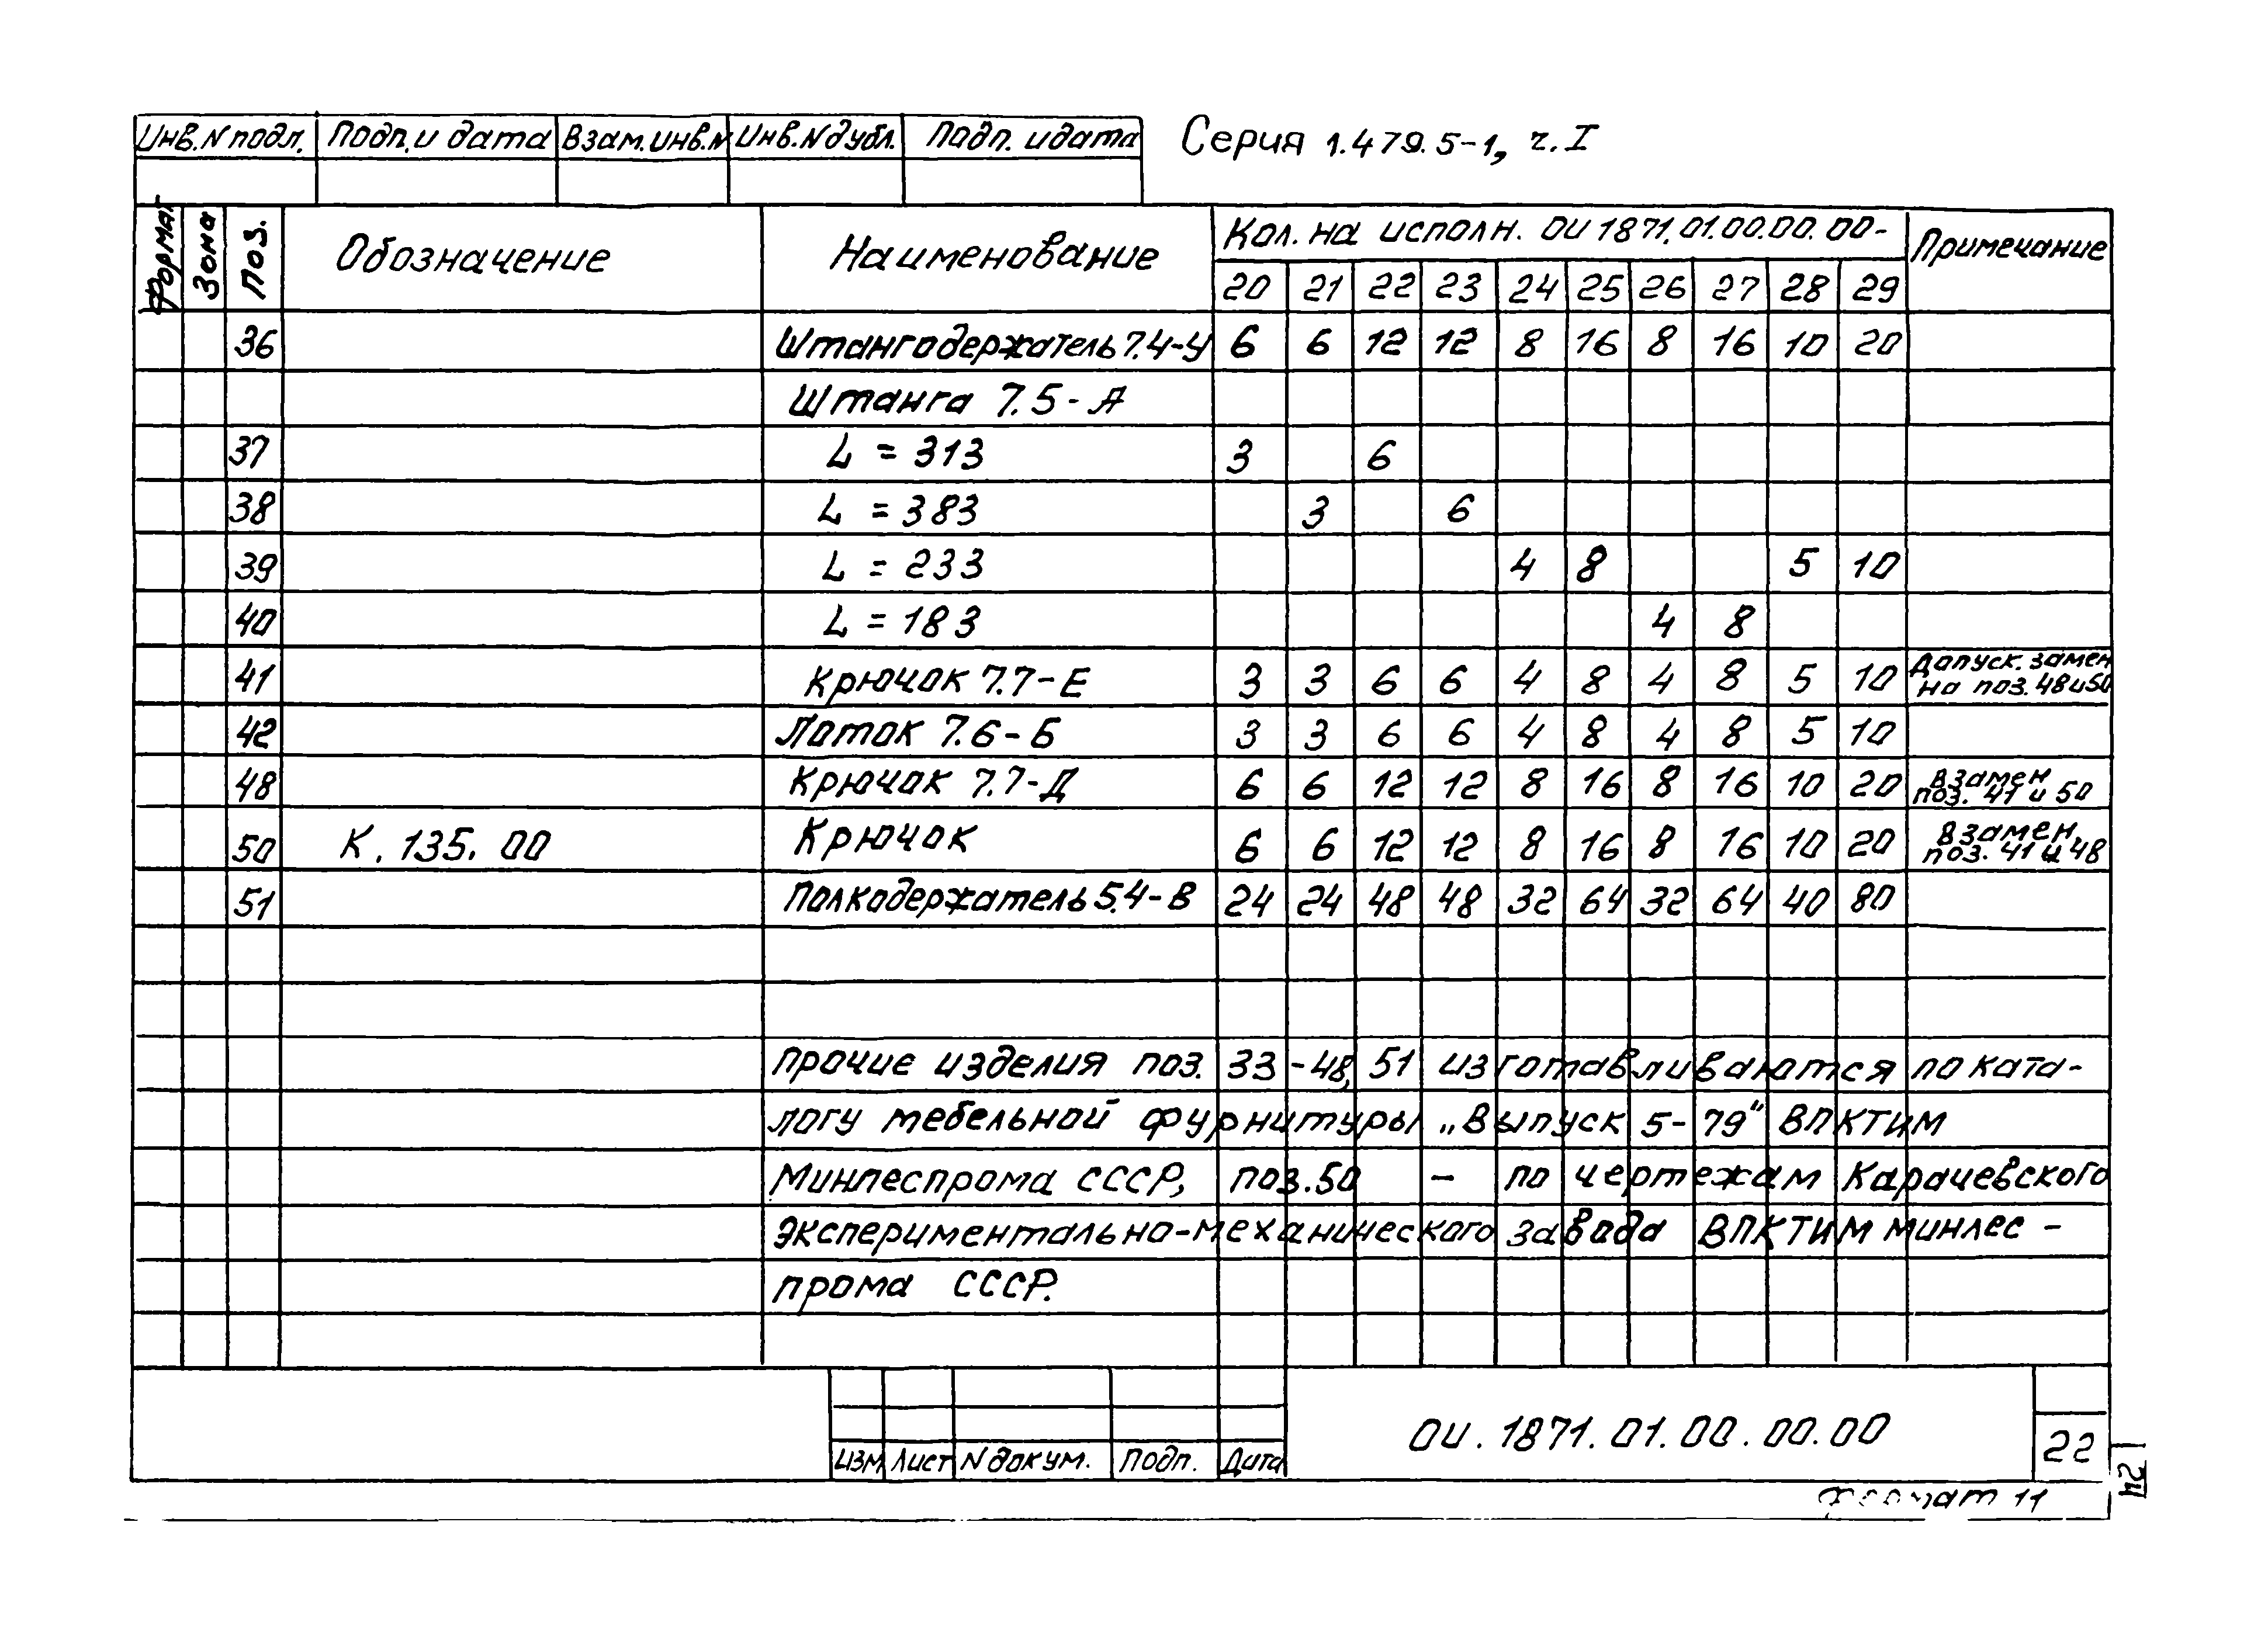 Инв.N подл. Подп. и дата Взам.инв.N Инв.N дубл. Подп. и дата Серия 1.479.5-1, ч.I
Формат Зона Поз. Обозначение Наименование Кол. на исполн. ОИ 1871.01.00.00.00- Примечание
20 21 22 23 24 25 26 27 28 29
36 Штангодержатель 7.4-У 6 6 12 12 8 16 8 16 10 20
Штанга 7.5-А
37 L = 313 3 6
38 L = 383 3 6
39 L = 233 4 8 5 10
40 L = 183 4 8
41 Крючок 7.7-Е 3 3 6 6 4 8 4 8 5 10 Допуск. замен на поз. 48 и 50
42 Лоток 7.6-Б 3 3 6 6 4 8 4 8 5 10
48 Крючок 7.7-Д 6 6 12 12 8 16 8 16 10 20 Взамен поз. 41 и 50
50 К.135.00 Крючок 6 6 12 12 8 16 8 16 10 20 Взамен поз. 41 и 48
51 Полкодержатель 5.4-В 24 24 48 48 32 64 32 64 40 80
Прочие изделия поз. 33-48, 51 изготавливаются по ката-
логу мебельной фурнитуры „Выпуск 5-79" ВПКТИМ
Минлеспрома СССР, поз.50 - по чертежам Карачевского
экспериментально-механического завода ВПКТИМ минлес-
прома СССР.
ОИ.1871.01.00.00.00 22
Изм Лист N докум. Подп. Дата
Формат 11
24